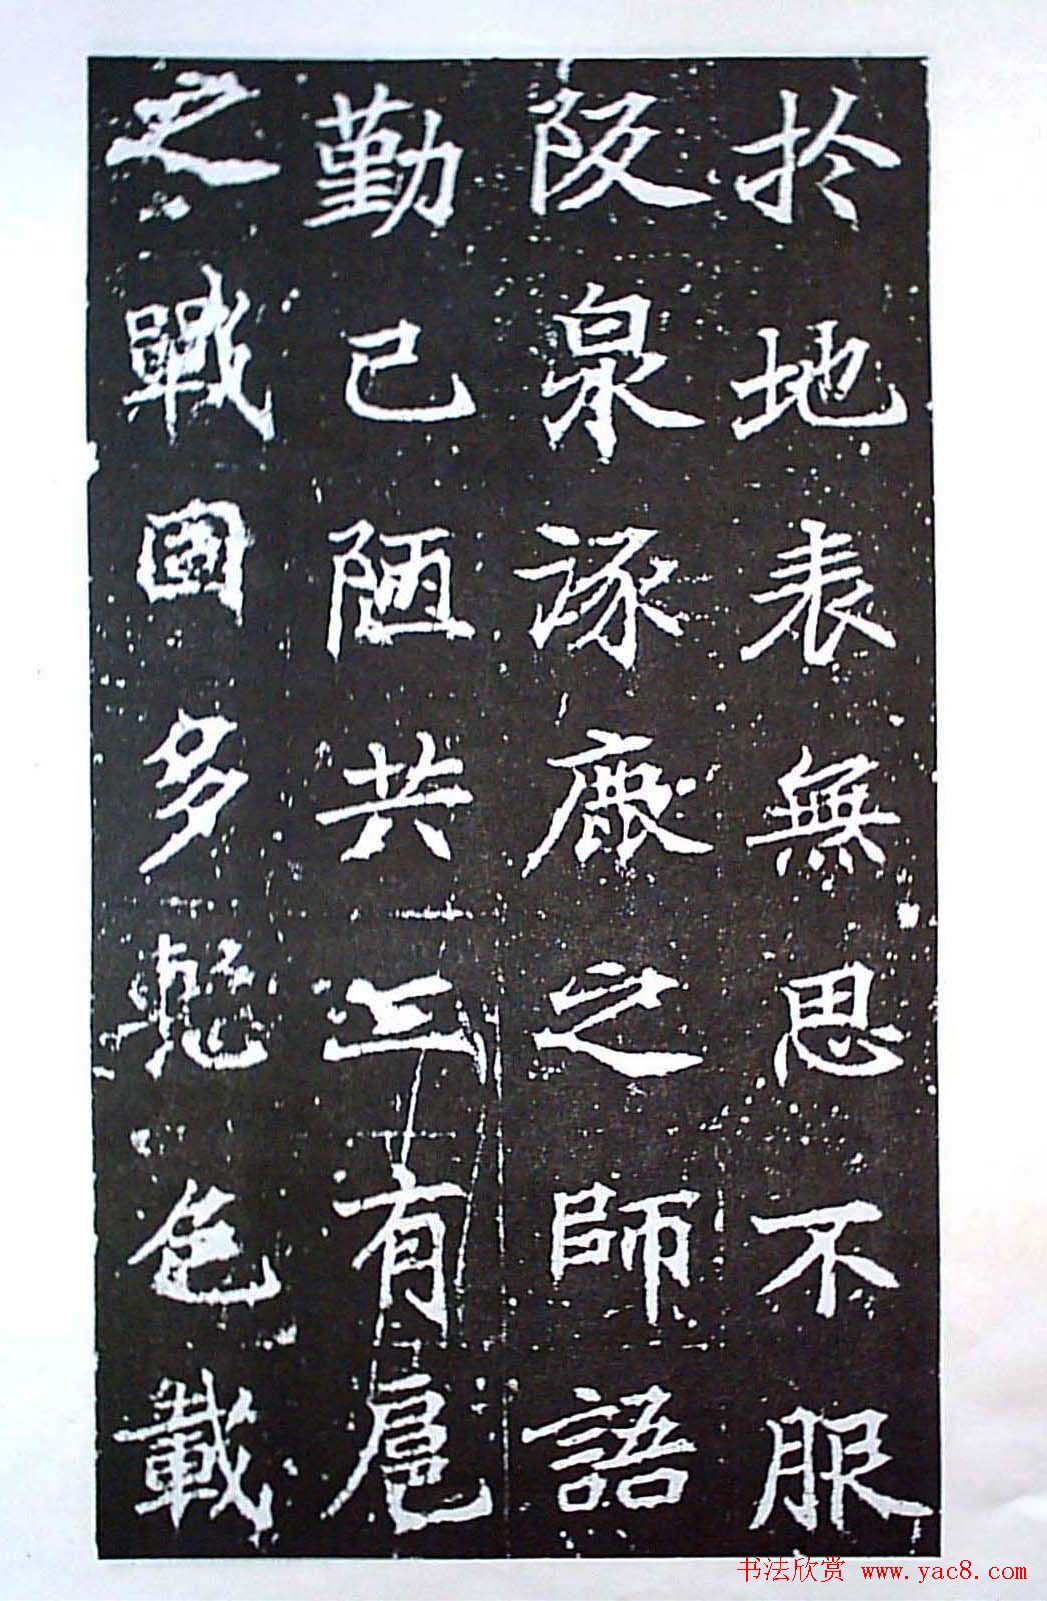 於地表無思不服
阪泉涿鹿之師語
勤已陋共工有扈
之戰國多慙色載
书法欣赏 www.yac8.com